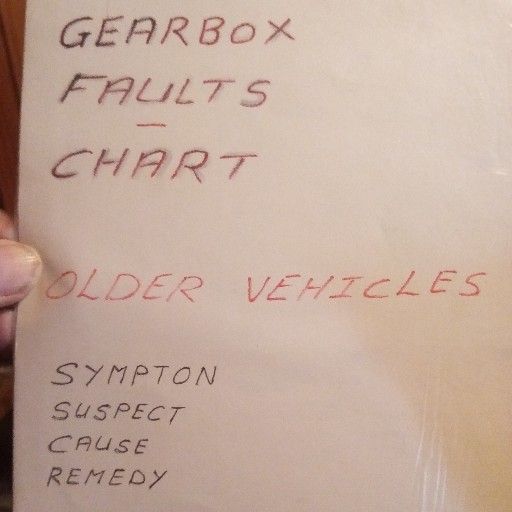 GEARBOX
FAULTS
-
CHART
OLDER VEHICLES
SYMPTON
SUSPECT
CAUSE
REMEDY